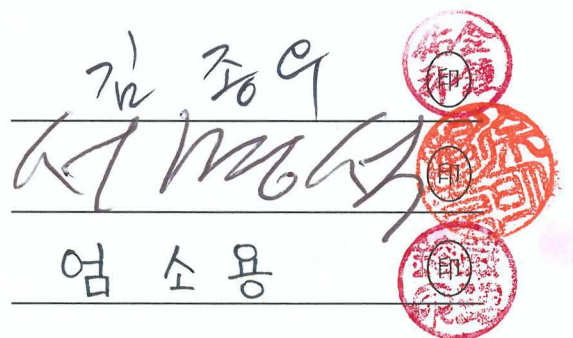 김 종우 印
서 명석 印
엄 소용 印